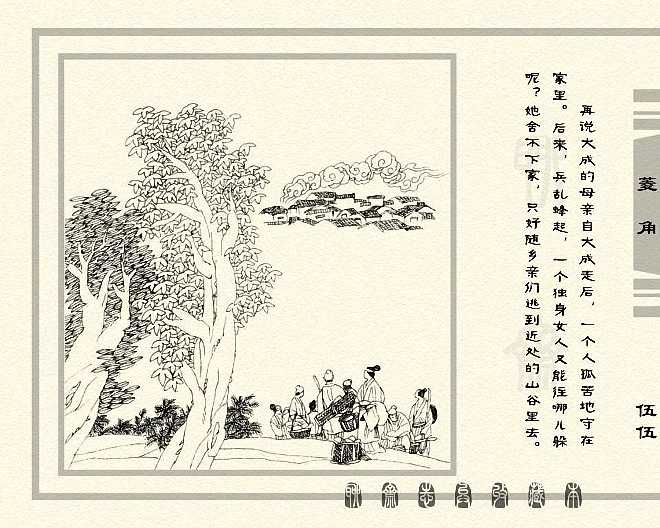 再说大成的母亲自大成走后，一个人孤苦地守在
家里。后来，兵乱蜂起，一个独身女人又能往哪儿躲
呢？她舍不下家，只好随乡亲们逃到近处的山谷里去。
菱角
伍伍